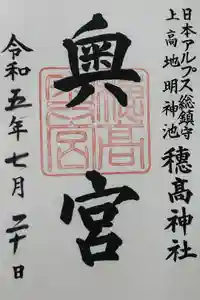 日本アルプス総鎮守
上高地明神池
穂髙神社
奥宮
穂高奥宮
令和五年七月二十日